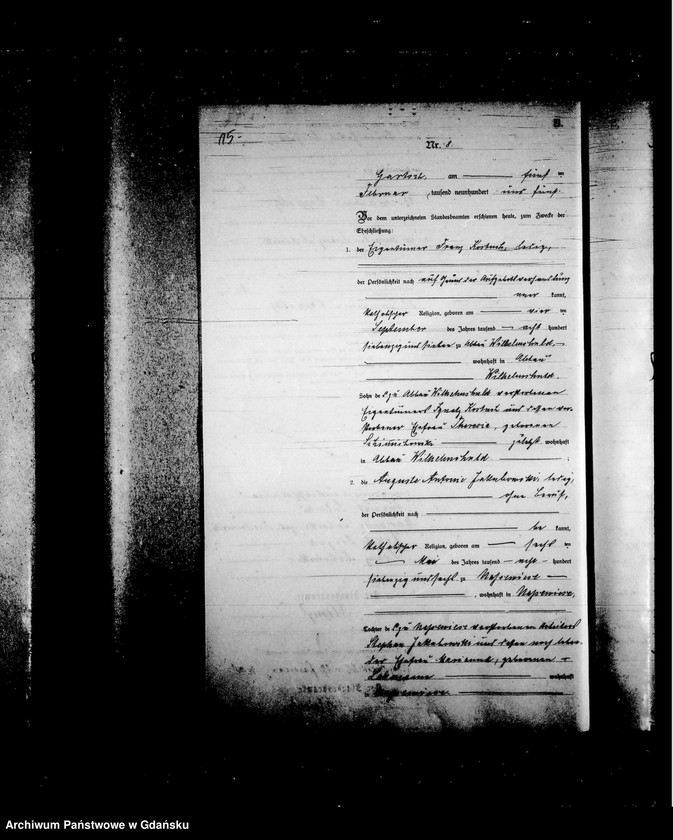 115-
B.
Nr. 8.
am fünf ten
Februar tausend neunhundert und fünf
Vor dem unterzeichneten Standesbeamten erschienen heute, zum Zwecke der
Eheschließung:
1. der Eigentümer Franz ledig,
der Persönlichkeit nach auf Grund der Aufgebotsverhandlung
aner kannt,
katholischer Religion, geboren am vier ten
September des Jahres tausend acht hundert
siebenzig und sieben zu Abbau Wilhelmshuld
wohnhaft in Abbau
Wilhelmshuld.
Sohn de s zu Abbau Wilhelmshuld verstorbenen
Eigentümers Ignatz und dessen ver-
storbener Ehefrau geborenen
zuletzt wohnhaft
in Abbau Wilhelmshuld
2. die Auguste Antonie Jakubowski, ledig,
ohne Beruf,
der Persönlichkeit nach
be kannt,
katholischer Religion, geboren am sechs ten
Mai des Jahres tausend acht hundert
siebenzig und sechs zu
, wohnhaft in
Tochter de s zu verstorbenen Arbeiters
Stephan Jakubowski und dessen noch leben-
der Ehefrau Marianna, geborenen
wohnhaft
in
Archiwum Państwowe w Gdańsku